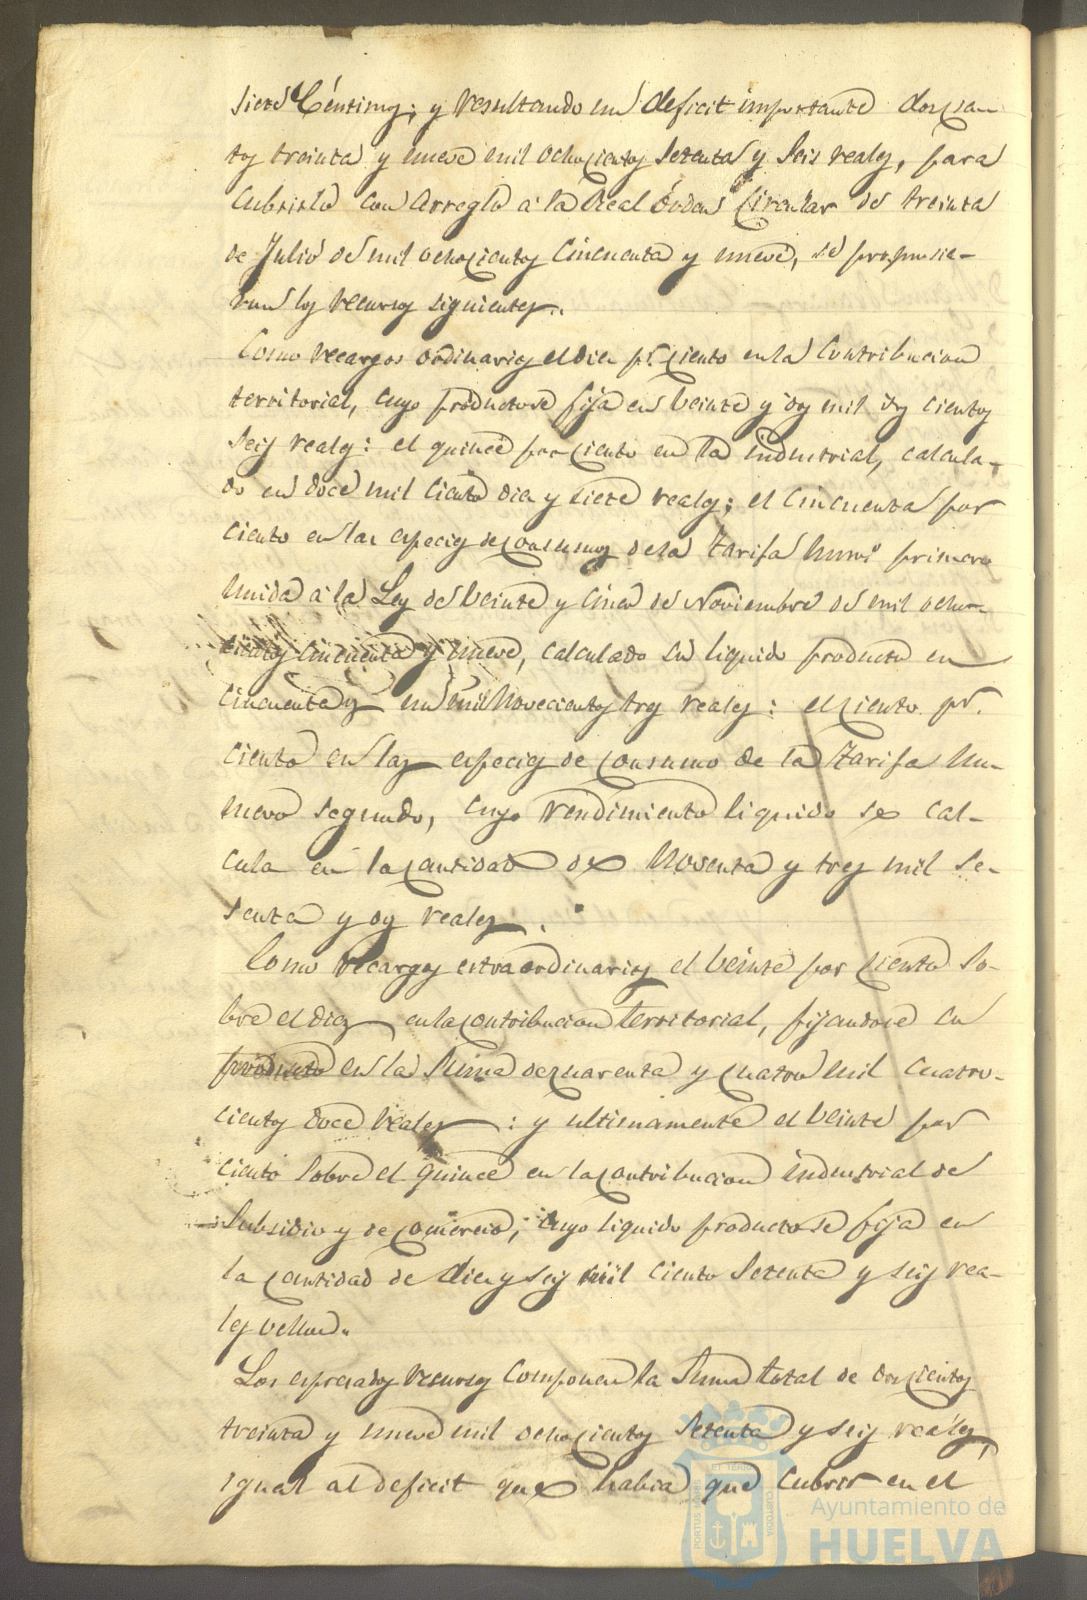 siete Céntimos; y resultando un deficit importante doscien-
tos treinta y nueve mil ochocientos setenta y seis reales, para
cubrirlo con arreglo a la Real Orden Circular de treinta
de Julio de mil ochocientos cincuenta y nueve, se propusie-
ron los recursos siguientes.
Como recargos ordinarios el diez pr. ciento en la Contribucion
territorial, cuyo producto se fija en veinte y dos mil dos cientos
seis reales: el quince por ciento en la industrial, calcula-
do en doce mil ciento diez y siete reales; el cincuenta por
ciento en las especies de consumos de la tarifa numo primero
unida a la Ley de veinte y cinco de Noviembre de mil ocho-
cientos cincuenta y nueve, calculado su liquido producto en
cincuenta y un mil novecientos tres reales: el ciento pr.
ciento en las especies de consumo de la tarifa nu-
mero segundo, cuyo rendimiento liquido se cal-
cula en la cantidad de noventa y tres mil se-
senta y dos reales.
Como recargos extraordinarios el veinte por ciento so-
bre el diez en la contribucion territorial, fijandose su
producto en la suma de cuarenta y cuatro mil cuatro-
cientos doce reales: y ultimamente el veinte por
ciento sobre el quince en la contribucion industrial de
subsidio y de comercio, cuyo liquido producto se fija en
la cantidad de diez y seis mil ciento setenta y seis rea-
les vellon.
Los espresados recursos componen la suma total de doscientos
treinta y nueve mil ochocientos setenta y seis reales,
igual al deficit que habia que cubrir en el
Ayuntamiento de
HUELVA